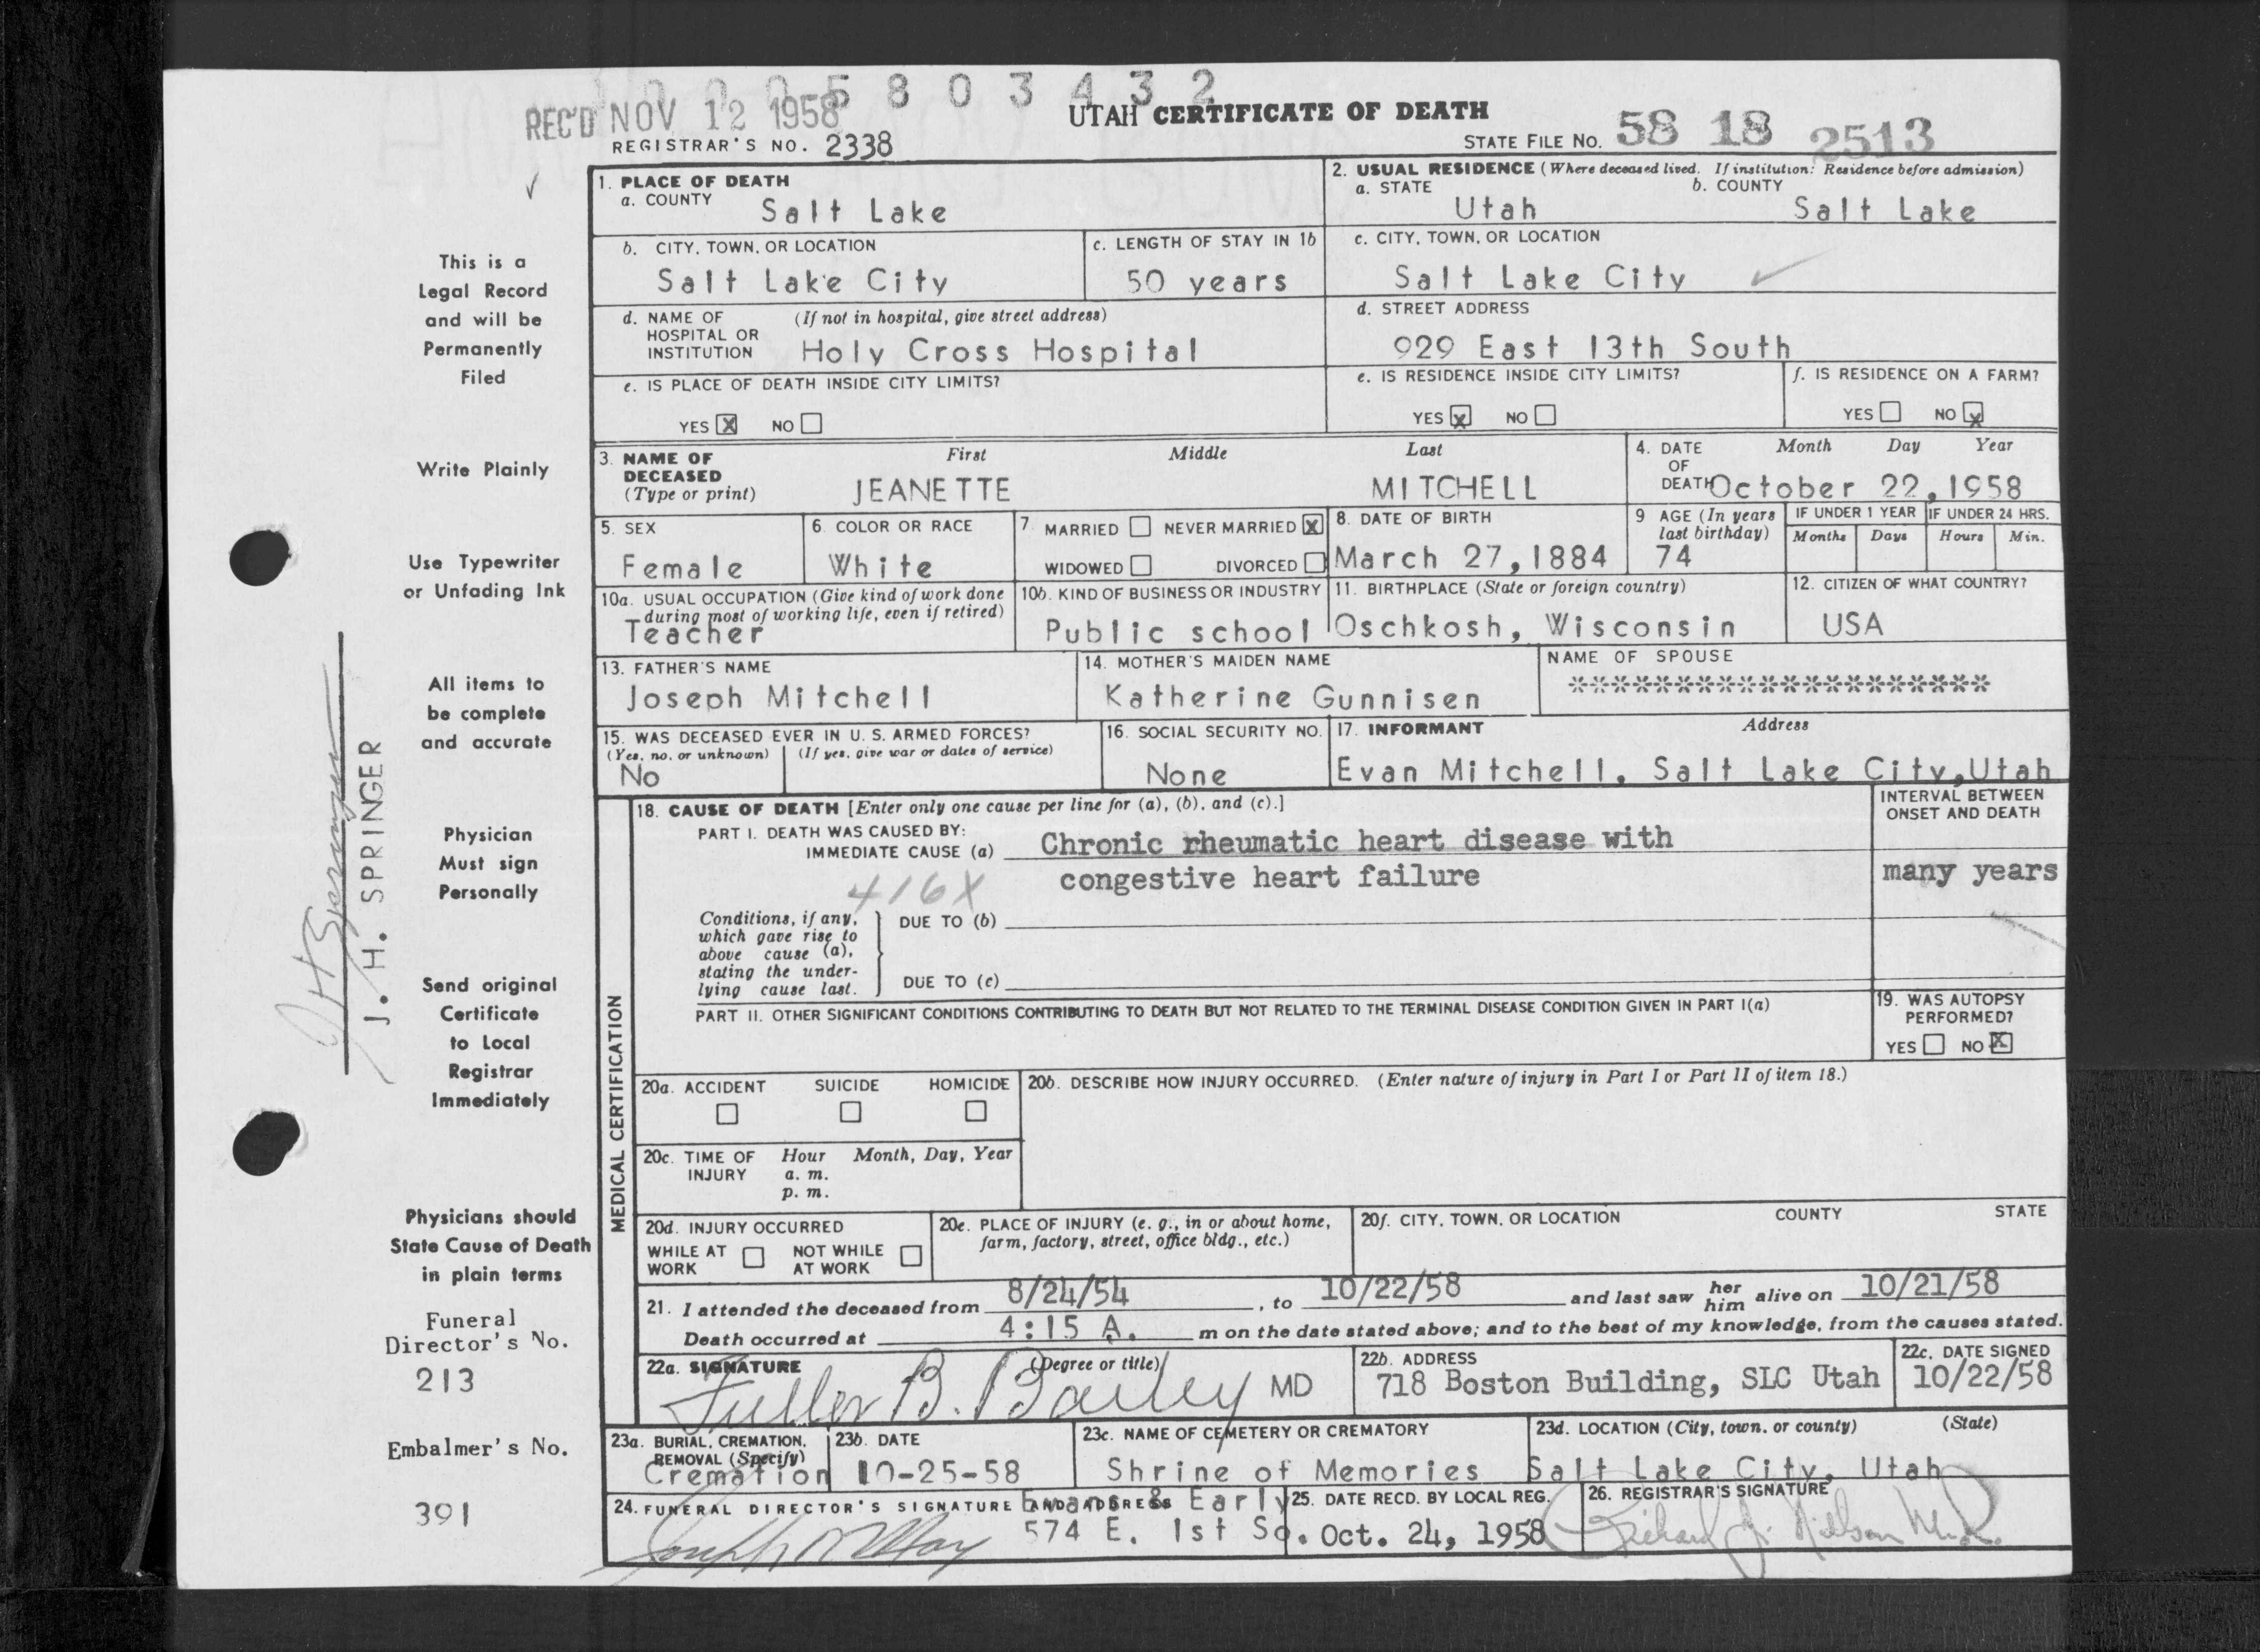 5 8 0 3 4 3 2
REC'D NOV 12 1958
UTAH CERTIFICATE OF DEATH
REGISTRAR'S NO. 2338
STATE FILE NO. 58 18 2513
This is a
Legal Record
and will be
Permanently
Filed
Write Plainly
Use Typewriter
or Unfading Ink
All items to
be complete
and accurate
Physician
Must sign
Personally
Send original
Certificate
to Local
Registrar
Immediately
Physicians should
State Cause of Death
in plain terms
Funeral
Director's No.
213
Embalmer's No.
391
J. H. SPRINGER
1. PLACE OF DEATH
a. COUNTY Salt Lake
2. USUAL RESIDENCE (Where deceased lived. If institution: Residence before admission)
a. STATE Utah b. COUNTY Salt Lake
b. CITY, TOWN, OR LOCATION
Salt Lake City
c. LENGTH OF STAY IN 1b
50 years
c. CITY, TOWN, OR LOCATION
Salt Lake City
d. NAME OF HOSPITAL OR INSTITUTION (If not in hospital, give street address)
Holy Cross Hospital
d. STREET ADDRESS
929 East 13th South
e. IS PLACE OF DEATH INSIDE CITY LIMITS?
YES X NO
e. IS RESIDENCE INSIDE CITY LIMITS?
YES X NO
f. IS RESIDENCE ON A FARM?
YES NO X
3. NAME OF DECEASED (Type or print)
First Middle Last
JEANETTE MITCHELL
4. DATE OF DEATH Month Day Year
October 22, 1958
5. SEX
Female
6. COLOR OR RACE
White
7. MARRIED NEVER MARRIED X
WIDOWED DIVORCED
8. DATE OF BIRTH
March 27, 1884
9 AGE (In years last birthday)
74
IF UNDER 1 YEAR
Months Days
IF UNDER 24 HRS.
Hours Min.
10a. USUAL OCCUPATION (Give kind of work done during most of working life, even if retired)
Teacher
10b. KIND OF BUSINESS OR INDUSTRY
Public school
11. BIRTHPLACE (State or foreign country)
Oschkosh, Wisconsin
12. CITIZEN OF WHAT COUNTRY?
USA
13. FATHER'S NAME
Joseph Mitchell
14. MOTHER'S MAIDEN NAME
Katherine Gunnisen
NAME OF SPOUSE
********************
15. WAS DECEASED EVER IN U. S. ARMED FORCES?
(Yes, no, or unknown) (If yes, give war or dates of service)
No
16. SOCIAL SECURITY NO.
None
17. INFORMANT Address
Evan Mitchell, Salt Lake City, Utah
MEDICAL CERTIFICATION
18. CAUSE OF DEATH [Enter only one cause per line for (a), (b), and (c).]
INTERVAL BETWEEN ONSET AND DEATH
PART I. DEATH WAS CAUSED BY:
IMMEDIATE CAUSE (a) Chronic rheumatic heart disease with
congestive heart failure
many years
416X
Conditions, if any, which gave rise to above cause (a), stating the underlying cause last.
DUE TO (b)
DUE TO (c)
PART II. OTHER SIGNIFICANT CONDITIONS CONTRIBUTING TO DEATH BUT NOT RELATED TO THE TERMINAL DISEASE CONDITION GIVEN IN PART I(a)
19. WAS AUTOPSY PERFORMED?
YES NO X
20a. ACCIDENT SUICIDE HOMICIDE
20b. DESCRIBE HOW INJURY OCCURRED. (Enter nature of injury in Part I or Part II of item 18.)
20c. TIME OF INJURY Hour Month, Day, Year
a. m.
p. m.
20d. INJURY OCCURRED
WHILE AT WORK NOT WHILE AT WORK
20e. PLACE OF INJURY (e. g., in or about home, farm, factory, street, office bldg., etc.)
20f. CITY, TOWN, OR LOCATION COUNTY STATE
21. I attended the deceased from 8/24/54, to 10/22/58 and last saw her him alive on 10/21/58
Death occurred at 4:15 A. m on the date stated above; and to the best of my knowledge, from the causes stated.
22a. SIGNATURE (Degree or title)
Fuller B. Bailey MD
22b. ADDRESS
718 Boston Building, SLC Utah
22c. DATE SIGNED
10/22/58
23a. BURIAL, CREMATION, REMOVAL (Specify)
Cremation
23b. DATE
10-25-58
23c. NAME OF CEMETERY OR CREMATORY
Shrine of Memories
23d. LOCATION (City, town, or county) (State)
Salt Lake City, Utah
24. FUNERAL DIRECTOR'S SIGNATURE AND ADDRESS
Evans & Early
574 E. 1st So.
25. DATE RECD. BY LOCAL REG.
Oct. 24, 1958
26. REGISTRAR'S SIGNATURE